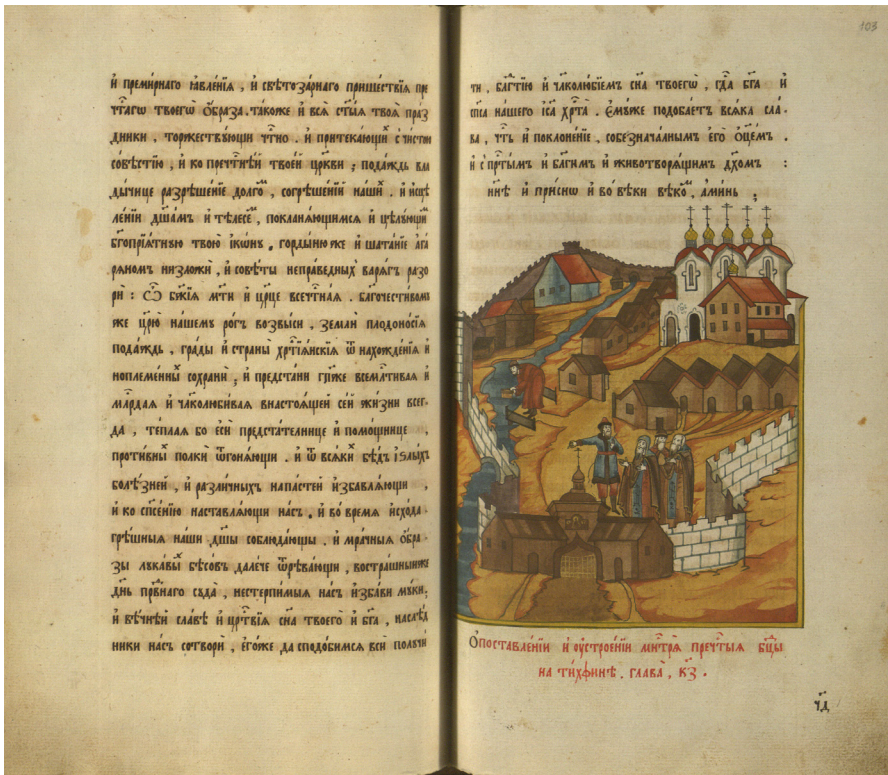 и҆ премирнаго ꙗ҆вленїѧ , и҆ свѣтоза́рнаго прише́ствїѧ пре
чⷭ҇таго твоегѡ̀ ѻ҆браза . такоже и҆ всѧ̀ ст҃ыѧ твоѧ̀ праз
дники , торжествꙋющи чⷭ҇тно . и҆ притекающи с чистою
совѣстїю , и҆ ко пречⷭ҇тнѣй твоей цр҃кви ; пода́ждь вла
дычице разрѣшенїе долгѡ , согрѣшенїй нашиⷯ . и҆ и҆сцѣ
ленїй дш҃амъ и҆ тѣлесеⷨ , покланѧющимсѧ и҆ цѣлꙋющиⷨ
бл҃гопрїѧтнꙋю твою̀ і҆конꙋ . гордыню же и҆ шата́нїе а҆га
рѧномъ низложѝ , и҆ совѣты неправедныхъ варѧгъ разо
рѝ : Ѽ бж҃їѧ мт҃и и҆ цр҃це всечⷭ҇тнаѧ . бл҃гочестивомꙋ
же цр҃ю̀ нашемꙋ рогъ возвыси , землѝ плодоносїѧ
пода́ждь , грады и҆ страны̀ хрⷭ҇тїѧнскїѧ ѿ нахожденїѧ и҆
ноплеменныⷯ сохранѝ ; и҆ предстани гж҃е всемлⷭ҇тиваѧ и҆
млⷭ҇рдаѧ и҆ чл҃колюбиваѧ внастоѧщей сей жи́зни всег-
да , те́плаѧ бо є҆сѝ предстателнице и҆ помощнице ,
противныⷯ полкѝ ѿгонѧющи . и҆ ѿ всѧкиⷯ бѣдъ і ѕлыхъ
болѣзней , и҆ разли́чныхъ напа́стей и҆збавлѧющи ,
и҆ ко сп҃сенїю наставлѧющи насъ . и҆ во̀ время и҆схода
грѣшныѧ наши дш҃ы соблюдающы . и҆ мрачныѧ ѻ҆бра
зы лꙋкавыⷯ бѣсовъ далече ѿрѣвающи , вострашныи же
дн҃ь прⷡ҇наго сꙋда̀ , нестерпимыѧ насъ и҆збави мꙋки ;
и҆ вѣчнѣй славѣ и҆ црⷭ҇твїѧ сн҃а твоегѡ и҆ бг҃а , наслѣⷣ
ники насъ сотворѝ , є҆гоже да сподобимсѧ всѝ получи
103
ти , бл҃гⷣтїю и҆ чл҃колюбїемъ сн҃а твоегѡ̀ , гдⷭ҇а бг҃а и҆
сп҃са нашего і҆с҃а хрⷭ҇та̀ . Є҆мꙋже подобаетъ всѧка сла-
ва , чⷭ҇ть и҆ поклоненїе , собезначалнымъ є҆го̀ ѻ҆ц҃емъ .
и҆ с прⷭ҇тымъ и҆ бл҃гимъ и҆ животворѧщимъ дх҃омъ :
нн҃ѣ и҆ при́сно и҆ во вѣ́ки вѣкѡⷨ , а҆минь ;
Ѻ҆поставленїи и҆ оу҆строенїи мⷭ҇нтрѧ̀ пречⷭ҇тыѧ бц҃ы
на ти́хфинѣ . глава̀ , к҃з .
ч҃д